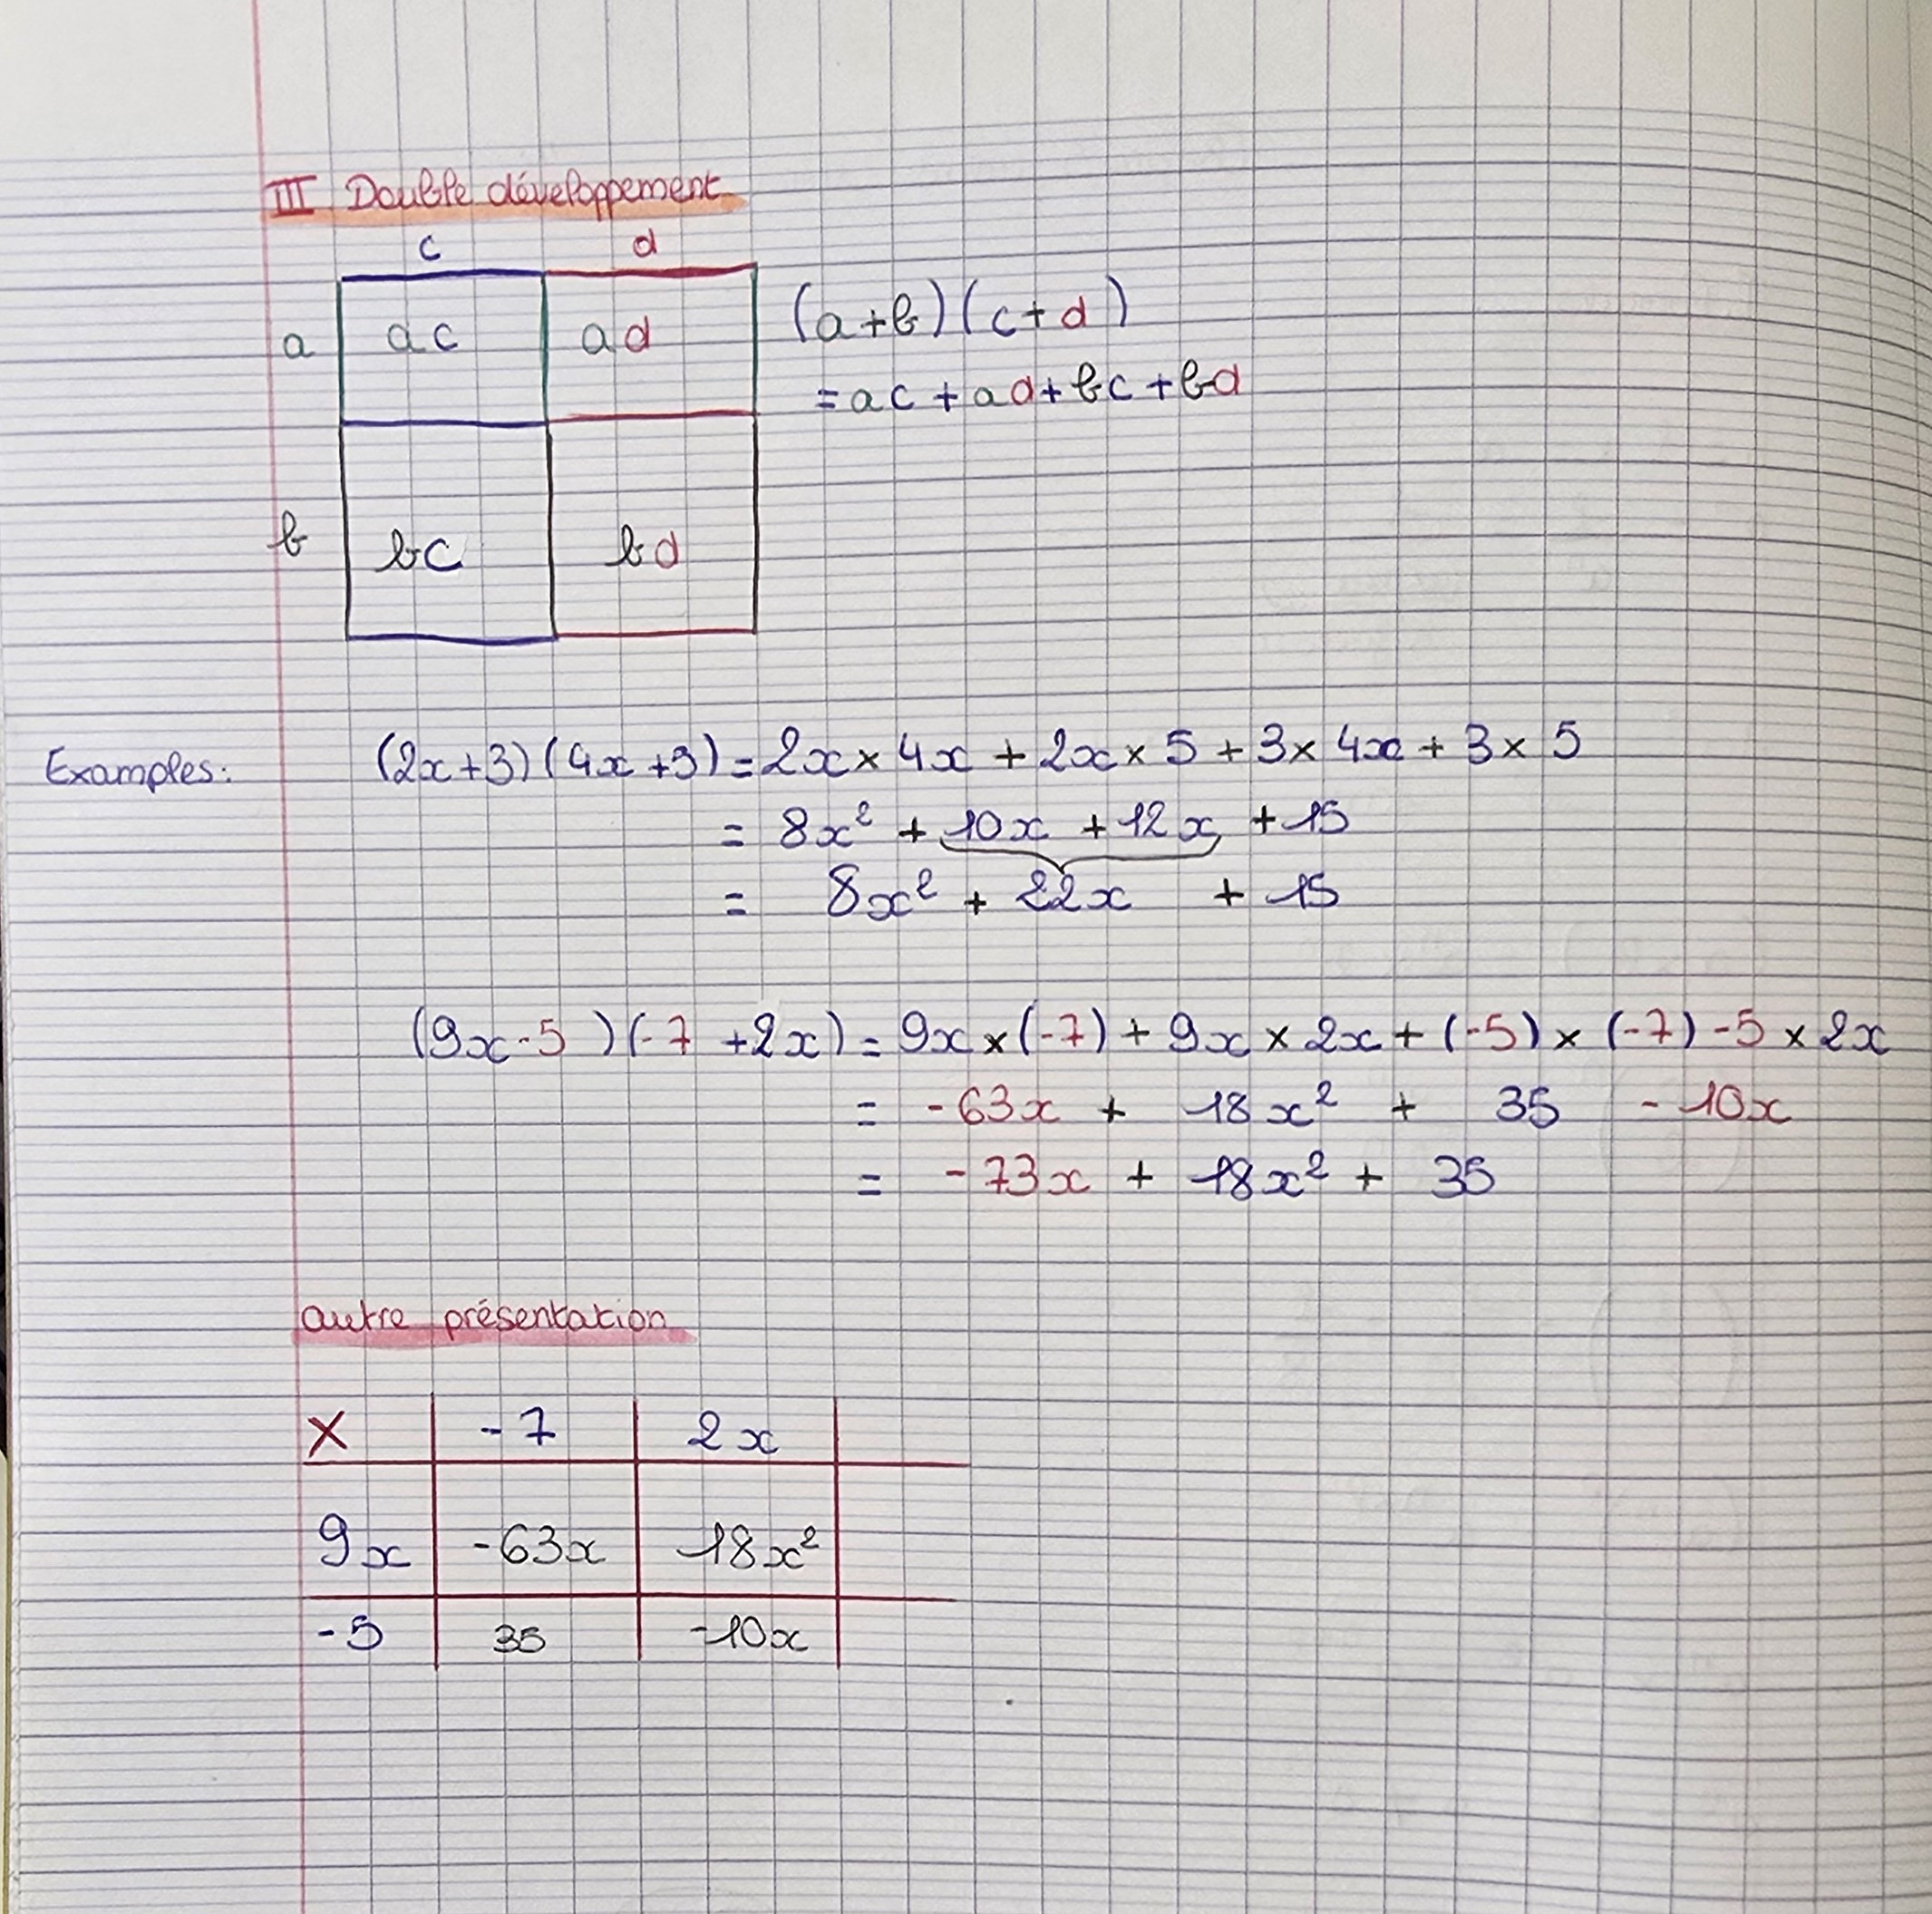 III Double développement
c d
a ac ad
(a+b)(c+d)
= ac + ad + bc + bd
b bc bd
Examples: (2x+3)(4x+5) = 2x × 4x + 2x × 5 + 3 × 4x + 3 × 5
= 8x² + 10x + 12x + 15
= 8x² + 22x + 15
(9x-5)(-7+2x) = 9x × (-7) + 9x × 2x + (-5) × (-7) -5 × 2x
= -63x + 18x² + 35 - 10x
= -73x + 18x² + 35
autre présentation
× -7 2x
9x -63x 18x²
-5 35 -10x